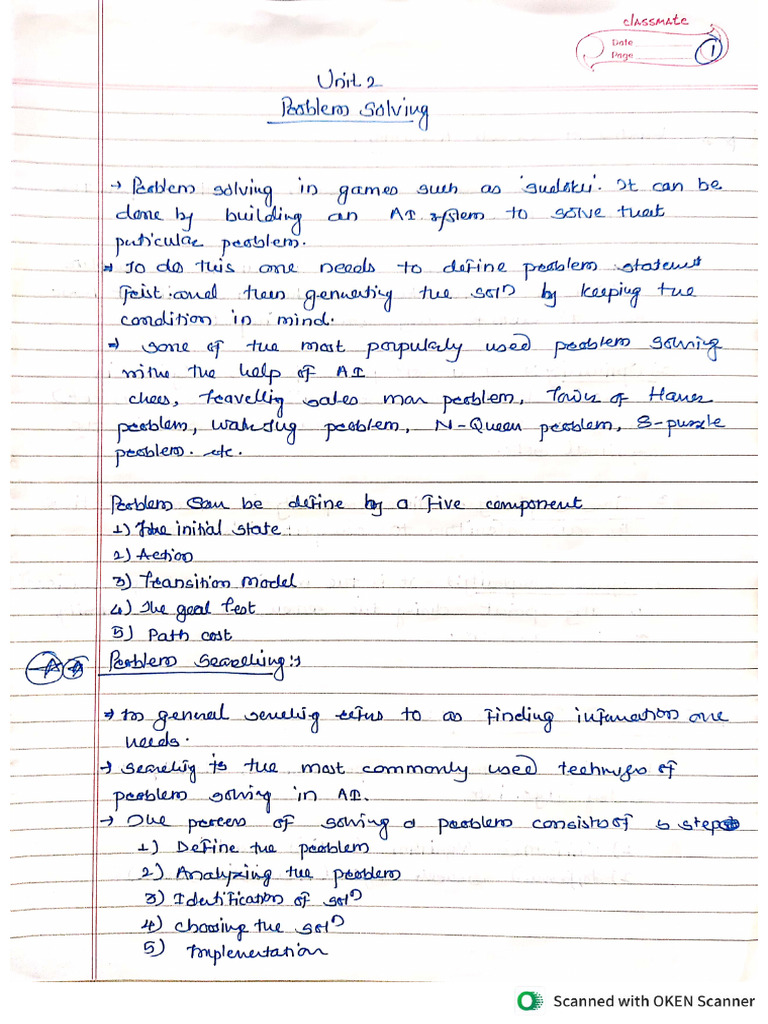 classmate
Date
Page
1
Unit 2
Problem Solving
→ Problem solving in games such as 'sudoku'. It can be
done by building an AI system to solve that
puticular problem.
→ To do this one needs to define problem statement
First and then genuerating the solⁿ by keeping the
condition in mind.
→ some of the most porpularly used problem solving
withe the help of AI
chees, travelling sales man problem, Tower of Hanoi
problem, water jug problem, N-Queen problem, 8-puzzle
problem. etc.
Problem can be define by a Five component
1) The initial state
2) Action
3) Transition model
4) The goal Test
5) Path cost
Problem Searching:→
→ In general serching refers to as Finding information one
needs.
→ searching is the most commonly used technique of
problem solving in AI.
→ The process of solving a problem consists of 5 steps
1) Define the problem
2) Analyzing the problem
3) Identification of solⁿ
4) choosing the solⁿ
5) Implementation
Scanned with OKEN Scanner